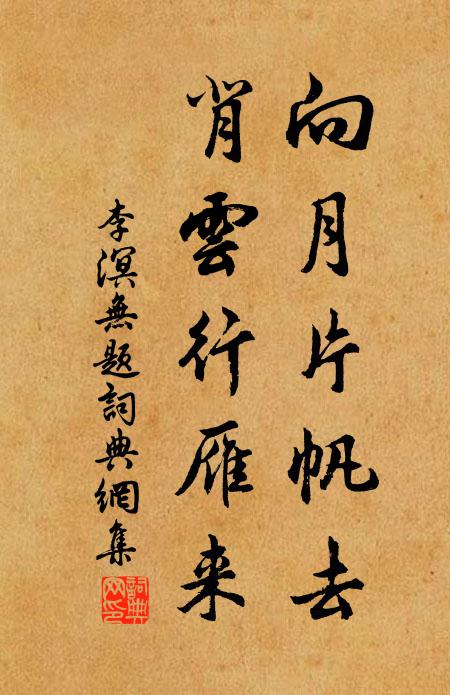 向月片帆去
背雲行雁来
李溟無題詞典網集
詞典
网印